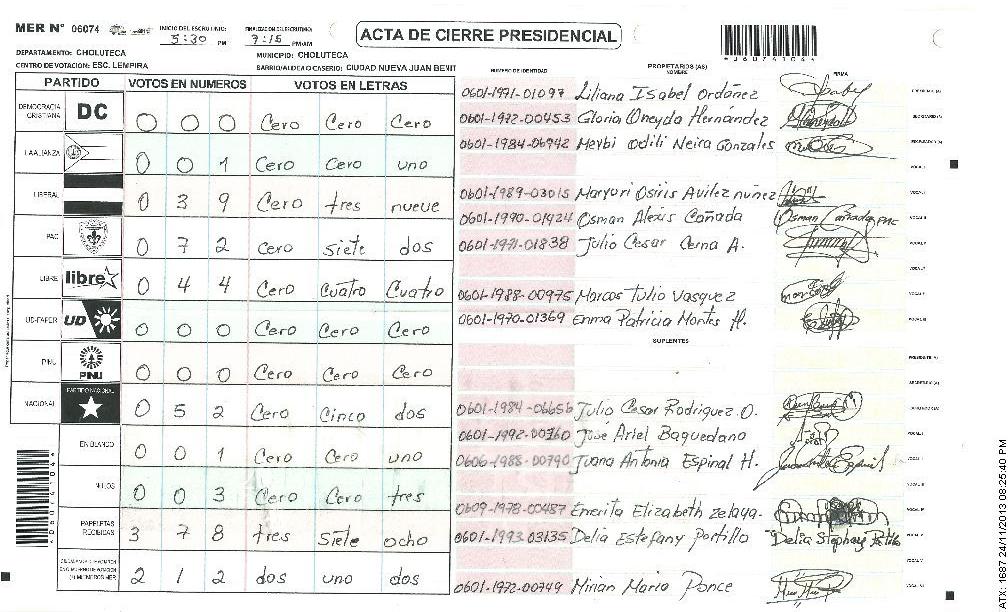 MER N° 06074 INICIO DEL ESCRUTINIO: 5:30 PM FINALIZACION DEL ESCRUTINIO: 7:15 PM/AM ACTA DE CIERRE PRESIDENCIAL
DEPARTAMENTO: CHOLUTECA MUNICIPIO: CHOLUTECA
CENTRO DE VOTACION: ESC. LEMPIRA BARRIO/ALDEA O CASERIO: CIUDAD NUEVA JUAN BENIT
PARTIDO VOTOS EN NUMEROS VOTOS EN LETRAS
DEMOCRACIA CRISTIANA DC 0 0 0 Cero Cero Cero
LA ALIANZA 0 0 1 Cero Cero uno
LIBERAL 0 3 9 Cero tres nueve
PAC 0 7 2 cero siete dos
LIBRE libre 0 4 4 Cero Cuatro Cuatro
UD-FAPER UD 0 0 0 Cero Cero Cero
PINU PINU 0 0 0 Cero Cero Cero
NACIONAL PARTIDO NACIONAL 0 5 2 Cero Cinco dos
EN BLANCO 0 0 1 Cero Cero uno
NULOS 0 0 3 Cero Cero tres
PAPELETAS RECIBIDAS 3 7 8 tres Siete ocho
2 1 2 dos uno dos
NUMERO DE IDENTIDAD PROPIETARIOS (AS) NOMBRE FIRMA
0601-1971-01097 Liliana Isabel Ordóñez
0601-1972-00453 Gloria Oneyda Hernández
0601-1984-06942 Meybi Odili Neira Gonzales
0601-1989-03015 Maryuri Osiris Avilez núñez
0601-1990-01424 Osman Alexis Cañada Osman Cañada PAC
0601-1971-01838 Julio Cesar Cerna A.
0601-1988-00975 Marcos Tulio Vasquez
0601-1970-01369 Enma Patricia Montes H.
SUPLENTES
0601-1984-06656 Julio Cesar Rodriguez O.
0601-1992-00760 José Ariel Baquedano
0606-1988-00790 Juana Antonia Espinal H.
0609-1978-00487 Emerita Elizabeth zelaya.
0601-1993-03135 Delia Estefany Portillo Delia Stephany Portillo
0601-1972-00749 Mirian Maria Ponce
ATX: 1687 24/11/2013 08:25:40 PM